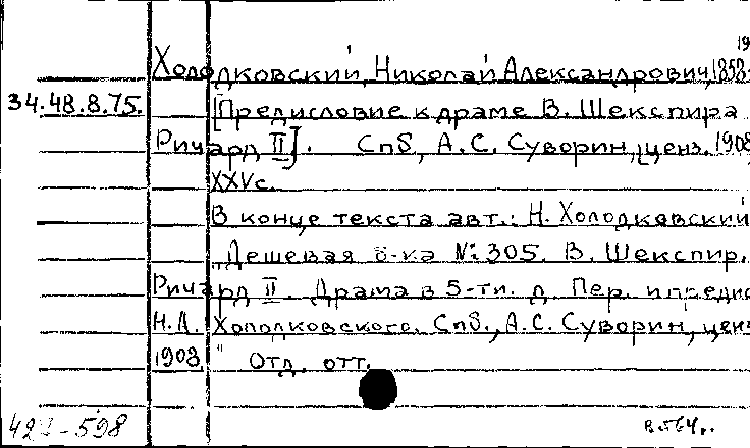 19
Холодковский, Николай Александрович, 1858-
34.48.8.75. [Предисловие к драме В. Шекспира
Ричард II]. Спб, А.С. Суворин, ценз. 1908,
XXVс.
В конце текста авт.: Н. Холодковский
"Дешевая б-ка № 305. В. Шекспир.
Ричард II. Драма в 5-ти. д. Пер. и предис
Н.А. Холодковского. Спб., А.С. Суворин, ценз
1908" Отд. отт.